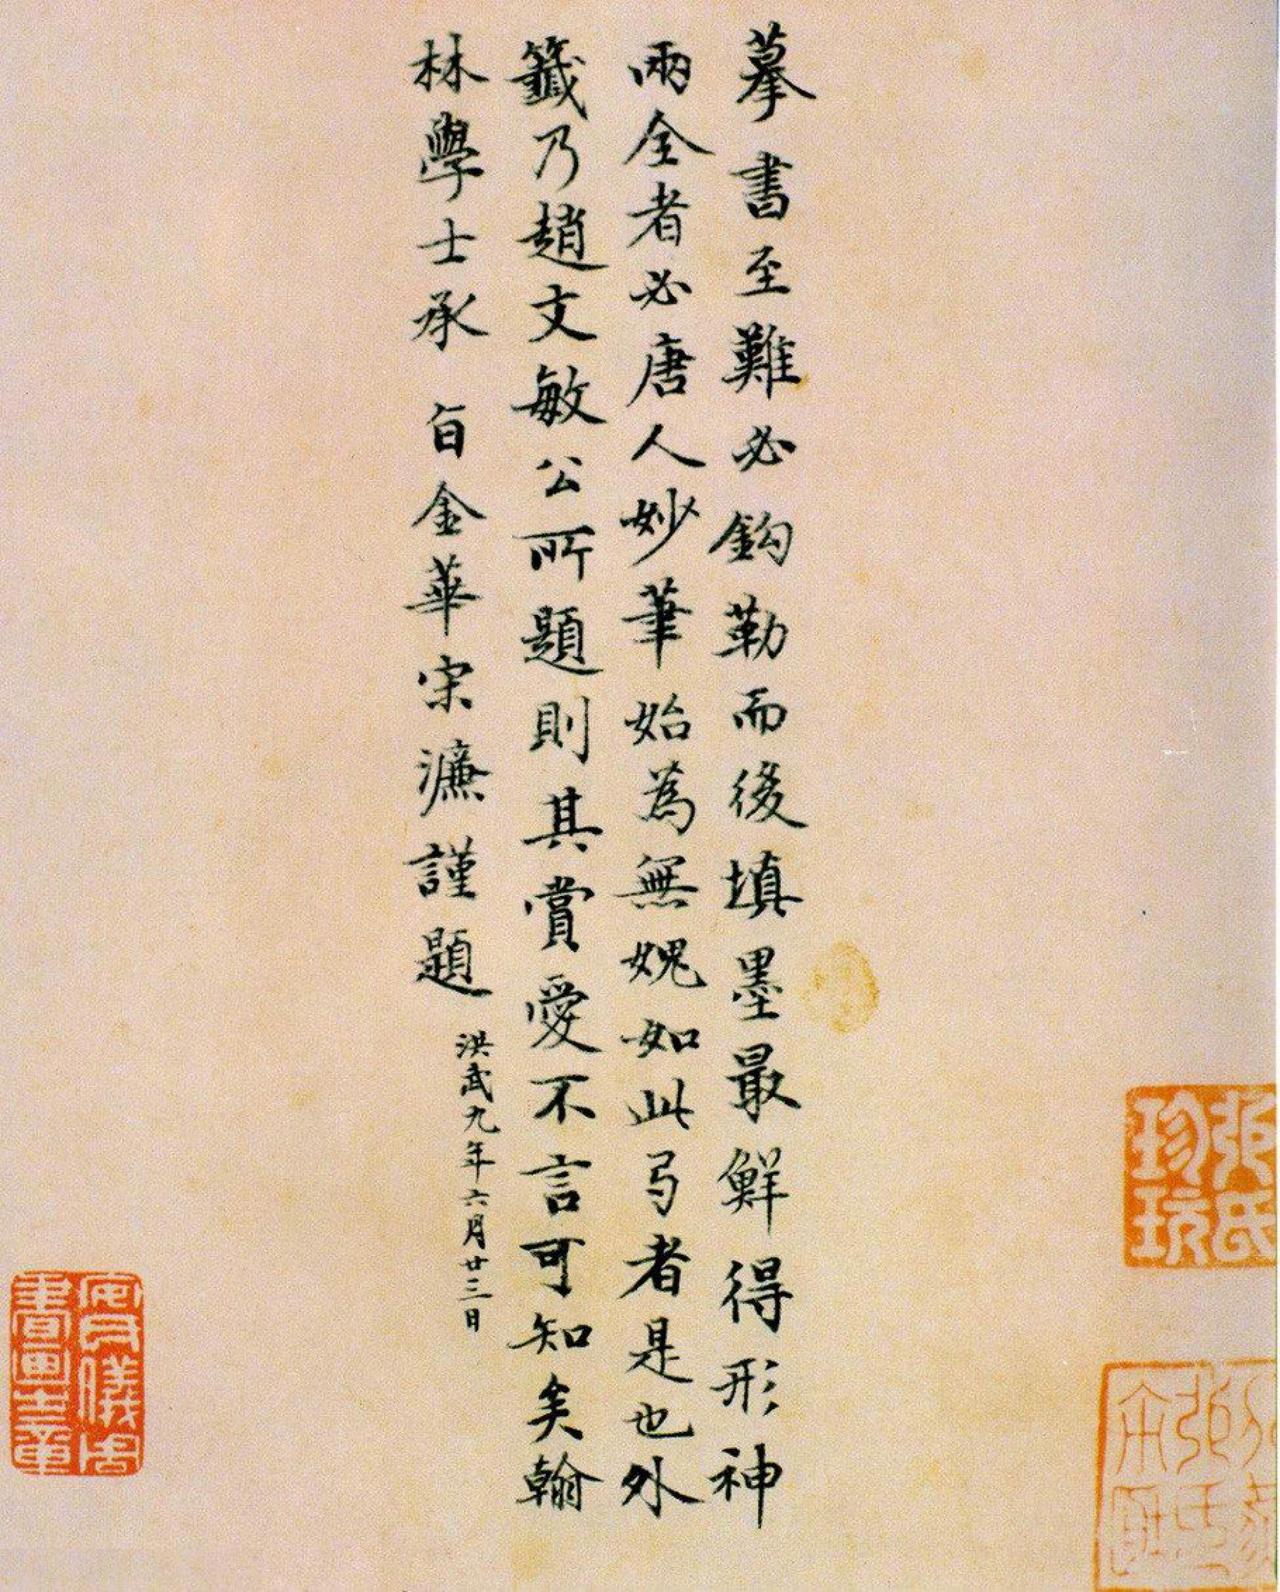 摹書至難必鈎勒而後填墨最鮮得形神
兩全者必唐人妙筆始為無媿如此弓者是也外
籤乃趙文敏公所題則其賞愛不言可知矣翰
林學士承 旨金華宋濂謹題
洪武九年六月廿三日
張氏珍玩
安儀周書畫之章